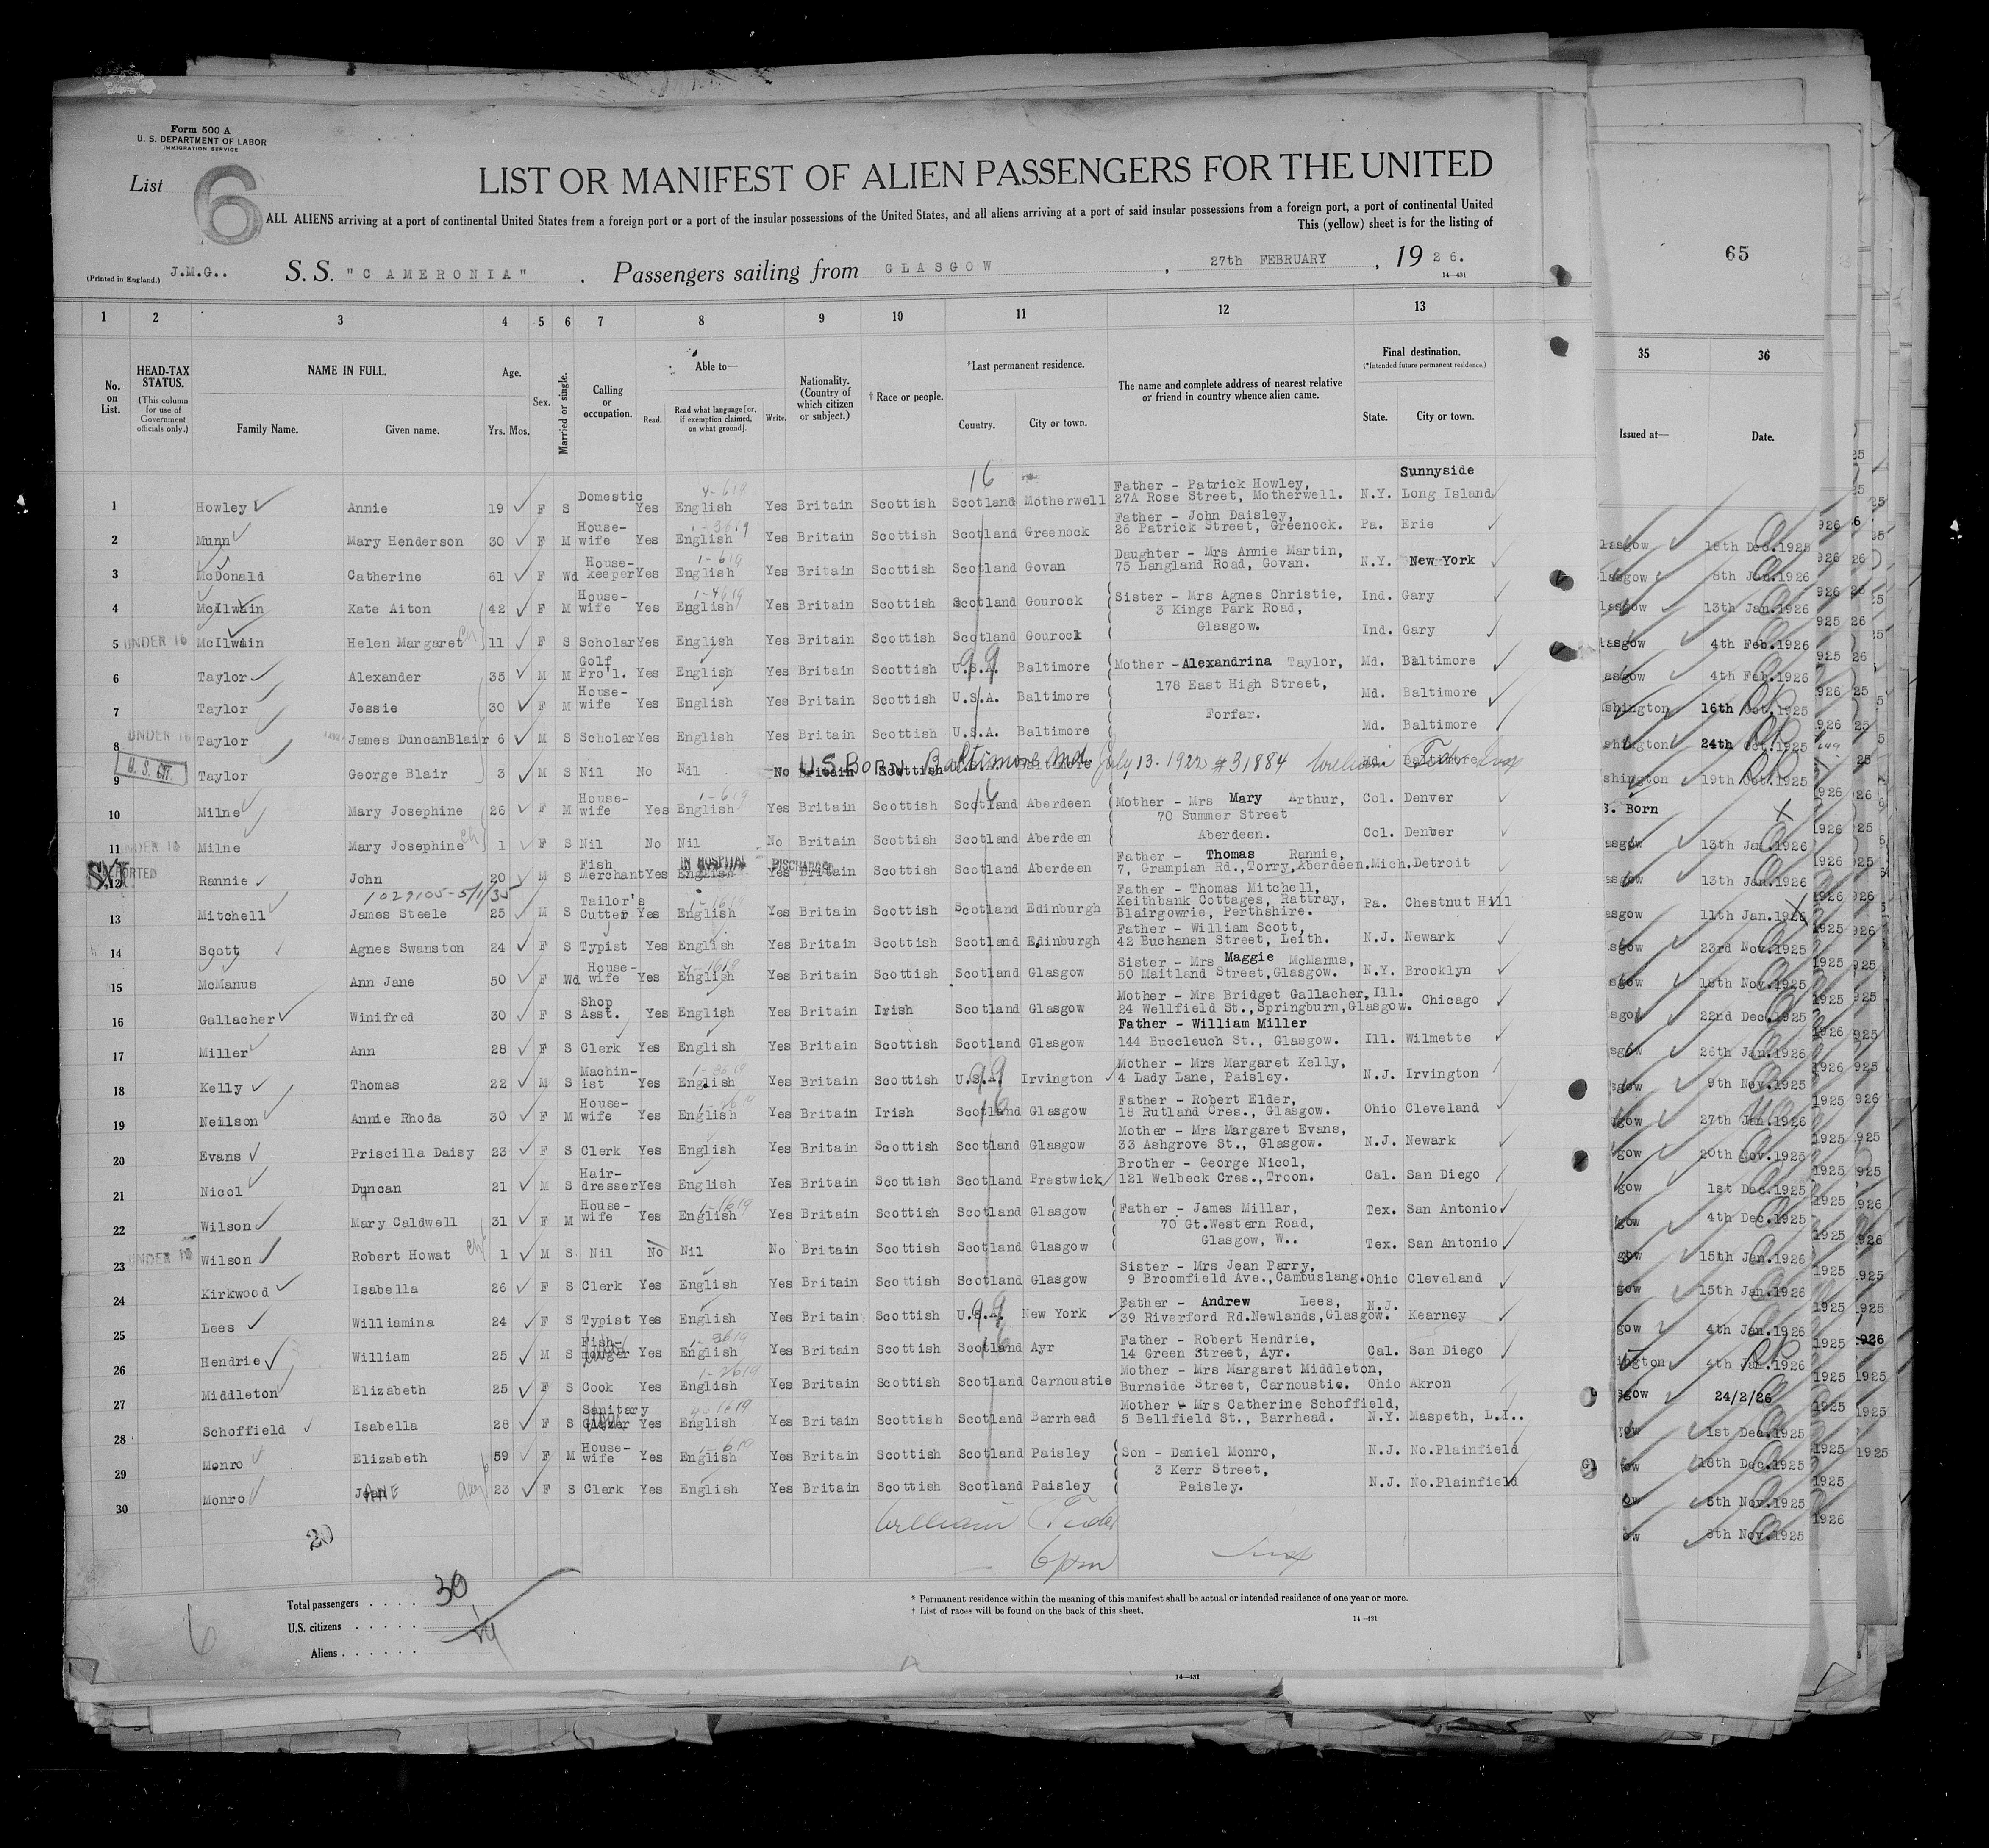 Form 500 A
U. S. DEPARTMENT OF LABOR
IMMIGRATION SERVICE
List 6
LIST OR MANIFEST OF ALIEN PASSENGERS FOR THE UNITED
ALL ALIENS arriving at a port of continental United States from a foreign port or a port of the insular possessions of the United States, and all aliens arriving at a port of said insular possessions from a foreign port, a port of continental United
This (yellow) sheet is for the listing of
65
(Printed in England.) J.M.G.. S. S. "CAMERONIA" . Passengers sailing from GLASGOW , 27th FEBRUARY , 1926.
14—431
1 2 3 4 5 6 7 8 9 10 11 12 13
35 36
No. on List.
HEAD-TAX STATUS.
(This column for use of Government officials only.)
NAME IN FULL.
Family Name. Given name.
Age.
Yrs. Mos.
Sex.
Married or single.
Calling or occupation.
Able to—
Read. Read what language [or, if exemption claimed, on what ground]. Write.
Nationality. (Country of which citizen or subject.)
† Race or people.
*Last permanent residence.
Country. City or town.
The name and complete address of nearest relative or friend in country whence alien came.
Final destination.
(*Intended future permanent residence.)
State. City or town.
Issued at— Date.
16
1 Howley Annie 19 F S Domestic Yes English Yes Britain Scottish Scotland Motherwell Father - Patrick Howley, 27A Rose Street, Motherwell. N.Y. Sunnyside Long Island
2 Munn Mary Henderson 30 F M House-wife Yes English Yes Britain Scottish Scotland Greenock Father - John Daisley, 26 Patrick Street, Greenock. Pa. Erie
3 McDonald Catherine 61 F Wd House-keeper Yes English Yes Britain Scottish Scotland Govan Daughter - Mrs Annie Martin, 75 Langland Road, Govan. N.Y. New York
4 McIlwain Kate Aiton 42 F M House-wife Yes English Yes Britain Scottish Scotland Gourock Sister - Mrs Agnes Christie, 3 Kings Park Road, Glasgow. Ind. Gary
5 UNDER 16 McIlwain Helen Margaret 11 F S Scholar Yes English Yes Britain Scottish Scotland Gourock Ind. Gary
6 Taylor Alexander 35 M M Golf Pro'l. Yes English Yes Britain Scottish U.S.A. Baltimore Mother - Alexandrina Taylor, 178 East High Street, Forfar. Md. Baltimore
7 Taylor Jessie 30 F M House-wife Yes English Yes Britain Scottish U.S.A. Baltimore Md. Baltimore
8 UNDER 16 Taylor James DuncanBlair 6 M S Scholar Yes English Yes Britain Scottish U.S.A. Baltimore Md. Baltimore
9 U. S. CIT. Taylor George Blair 3 M S Nil No Nil No Britain Scottish Baltimore
U.S BORN Baltimore Md. July 13-1922 #31884 William
10 Milne Mary Josephine 26 F M House-wife Yes English Yes Britain Scottish Scotland Aberdeen Mother - Mrs Mary Arthur, 70 Summer Street Aberdeen. Col. Denver
11 UNDER 16 Milne Mary Josephine 1 F S Nil No Nil No Britain Scottish Scotland Aberdeen Col. Denver
IN HOSPITAL DISCHARGED
12 Rannie John 20 M S Fish Merchant Yes English Yes Britain Scottish Scotland Aberdeen Father - Thomas Rannie, 7, Grampian Rd., Torry, Aberdeen. Mich. Detroit
1029105-5/1/35
13 Mitchell James Steele 25 M S Tailor's Cutter Yes English Yes Britain Scottish Scotland Edinburgh Father - Thomas Mitchell, Keithbank Cottages, Rattray, Blairgowrie, Perthshire. Pa. Chestnut Hill
14 Scott Agnes Swanston 24 F S Typist Yes English Yes Britain Scottish Scotland Edinburgh Father - William Scott, 42 Buchanan Street, Leith. N.J. Newark
15 McManus Ann Jane 50 F Wd House-wife Yes English Yes Britain Scottish Scotland Glasgow Sister - Mrs Maggie McManus, 50 Maitland Street, Glasgow. N.Y. Brooklyn
16 Gallacher Winifred 30 F S Shop Asst. Yes English Yes Britain Irish Scotland Glasgow Mother - Mrs Bridget Gallacher, 24 Wellfield St., Springburn, Glasgow. Ill. Chicago
17 Miller Ann 28 F S Clerk Yes English Yes Britain Scottish Scotland Glasgow Father - William Miller 144 Buccleuch St., Glasgow. Ill. Wilmette
18 Kelly Thomas 22 M S Machin-ist Yes English Yes Britain Scottish U.S.A. Irvington Mother - Mrs Margaret Kelly, 4 Lady Lane, Paisley. N.J. Irvington
19 Neilson Annie Rhoda 30 F M House-wife Yes English Yes Britain Irish Scotland Glasgow Father - Robert Elder, 18 Rutland Cres., Glasgow. Ohio Cleveland
20 Evans Priscilla Daisy 23 F S Clerk Yes English Yes Britain Scottish Scotland Glasgow Mother - Mrs Margaret Evans, 33 Ashgrove St., Glasgow. N.J. Newark
21 Nicol Duncan 21 M S Hair-dresser Yes English Yes Britain Scottish Scotland Prestwick Brother - George Nicol, 121 Welbeck Cres., Troon. Cal. San Diego
22 Wilson Mary Caldwell 31 F M House-wife Yes English Yes Britain Scottish Scotland Glasgow Father - James Millar, 70 Gt.Western Road, Glasgow, W.. Tex. San Antonio
23 UNDER 16 Wilson Robert Howat 1 M S Nil No Nil No Britain Scottish Scotland Glasgow Tex. San Antonio
24 Kirkwood Isabella 26 F S Clerk Yes English Yes Britain Scottish Scotland Glasgow Sister - Mrs Jean Parry, 9 Broomfield Ave., Cambuslang. Ohio Cleveland
25 Lees Williamina 24 F S Typist Yes English Yes Britain Scottish U.S.A. New York Father - Andrew Lees, 39 Riverford Rd.Newlands, Glasgow. N.J. Kearney
26 Hendrie William 25 M S Fish-monger Yes English Yes Britain Scottish Scotland Ayr Father - Robert Hendrie, 14 Green Street, Ayr. Cal. San Diego
27 Middleton Elizabeth 25 F S Cook Yes English Yes Britain Scottish Scotland Carnoustie Mother - Mrs Margaret Middleton, Burnside Street, Carnoustie. Ohio Akron
28 Schoffield Isabella 28 F S Sanitary Yes English Yes Britain Scottish Scotland Barrhead Mother - Mrs Catherine Schoffield, 5 Bellfield St., Barrhead. N.Y. Maspeth, L.I..
29 Monro Elizabeth 59 F M House-wife Yes English Yes Britain Scottish Scotland Paisley Son - Daniel Monro, 3 Kerr Street, Paisley. N.J. No.Plainfield
30 Monro JANE 23 F S Clerk Yes English Yes Britain Scottish Scotland Paisley N.J. No.Plainfield
lasgow 18th Dec.1925
lasgow 8th Jan.1926
lasgow 13th Jan.1926
asgow 4th Feb.1926
asgow 4th Feb.1926
shington 16th Oct.1925
shington 24th Oct.1925
shington 19th Oct.1925
S. Born
asgow 13th Jan.1926
asgow 13th Jan.1926
asgow 11th Jan.1926
sgow 23rd Nov.1925
sgow 18th Nov.1925
sgow 22nd Dec.1925
sgow 26th Jan.1926
sgow 9th Nov.1925
gow 27th Jan.1926
gow 20th Nov.1925
gow 1st Dec.1925
gow 4th Dec.1925
gow 15th Jan.1926
gow 15th Jan.1926
gow 4th Jan.1926
ington 4th Jan.1926
sgow 24/2/26
gow 1st Dec.1925
ow 18th Dec.1925
ow 5th Nov.1925
ow 6th Nov.1925
William
20
6
Total passengers . . . . 30
U.S. citizens . . . . .
Aliens . . . . . .
* Permanent residence within the meaning of this manifest shall be actual or intended residence of one year or more.
† List of races will be found on the back of this sheet.
14—431
14—431